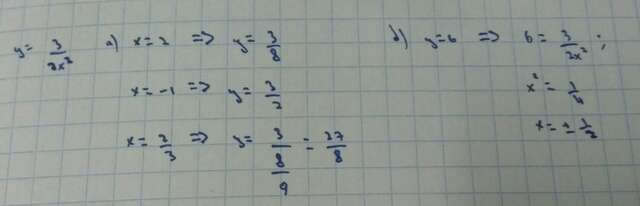 y = 3/2x² a) x = 2 => y = 3/8
x = -1 => y = 3/2
x = 2/3 => y = 3/(8/9) = 27/8
b) y = 6 => 6 = 3/2x² ;
x² = 1/4
x = ± 1/2